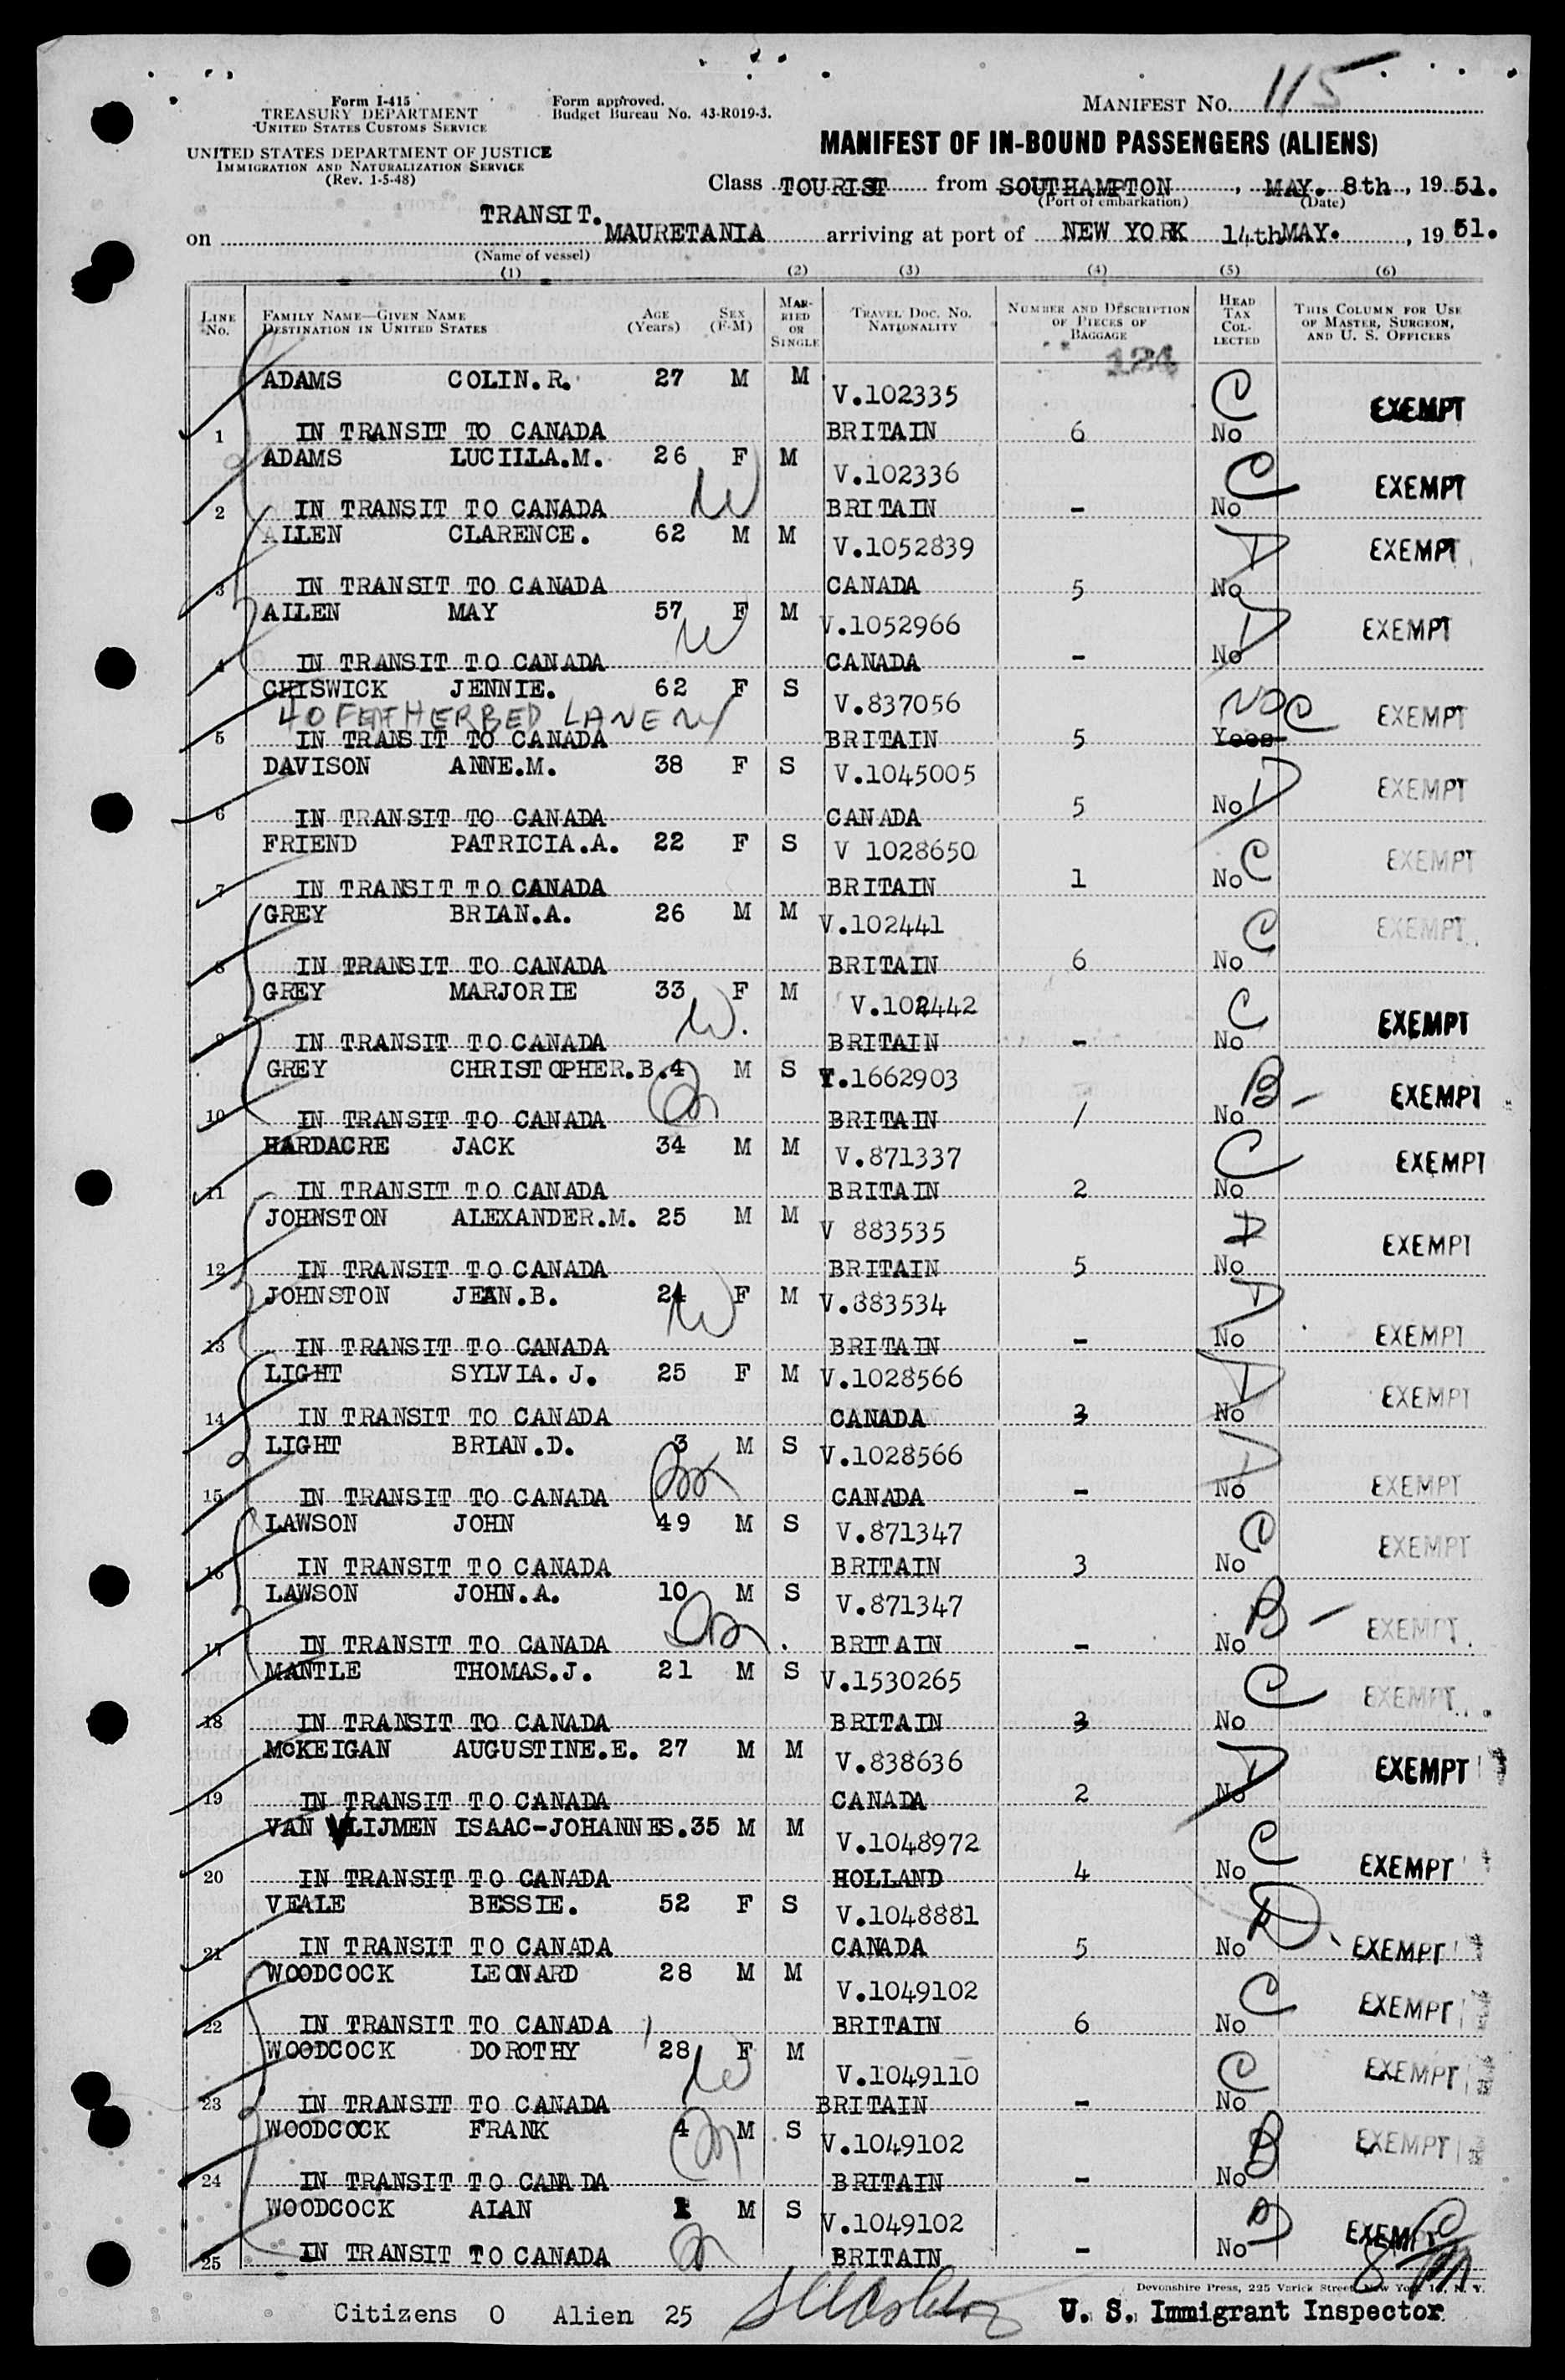 115
Form I-415
TREASURY DEPARTMENT
UNITED STATES CUSTOMS SERVICE
UNITED STATES DEPARTMENT OF JUSTICE
IMMIGRATION AND NATURALIZATION SERVICE
(Rev. 1-5-48)
Form approved.
Budget Bureau No. 43-R019-3.
MANIFEST NO.
MANIFEST OF IN-BOUND PASSENGERS (ALIENS)
Class TOURIST from SOUTHAMPTON, MAY. 8th, 1951.
(Port of embarkation) (Date)
TRANSIT.
on MAURETANIA arriving at port of NEW YORK 14th MAY., 1951.
(Name of vessel)
(1) (2) (3) (4) (5) (6)
LINE No. FAMILY NAME—GIVEN NAME DESTINATION IN UNITED STATES AGE (Years) SEX (F-M) MARRIED OR SINGLE TRAVEL DOC. NO. NATIONALITY NUMBER AND DESCRIPTION OF PIECES OF BAGGAGE HEAD TAX COLLECTED THIS COLUMN FOR USE OF MASTER, SURGEON, AND U. S. OFFICERS
ADAMS COLIN.R. 27 M M V.102335 C EXEMPT
1 IN TRANSIT TO CANADA BRITAIN 6 No
ADAMS LUCILLA.M. 26 F M V.102336 C EXEMPT
2 IN TRANSIT TO CANADA W BRITAIN - No
ALLEN CLARENCE. 62 M M V.1052839 D EXEMPT
3 IN TRANSIT TO CANADA CANADA 5 No
ALLEN MAY 57 F M V.1052966 D EXEMPT
4 IN TRANSIT TO CANADA W CANADA - No
CHISWICK JENNIE. 62 F S V.837056 NO C EXEMPT
40 FEATHERBED LANE NY
5 IN TRANSIT TO CANADA BRITAIN 5 Yoes
DAVISON ANNE.M. 38 F S V.1045005 D EXEMPT
6 IN TRANSIT TO CANADA CANADA 5 No
FRIEND PATRICIA.A. 22 F S V 1028650 C EXEMPT
7 IN TRANSIT TO CANADA BRITAIN 1 No
GREY BRIAN.A. 26 M M V.102441 C EXEMPT
8 IN TRANSIT TO CANADA BRITAIN 6 No
GREY MARJORIE 33 F M V.102442 C EXEMPT
9 IN TRANSIT TO CANADA W. BRITAIN - No
GREY CHRISTOPHER.B.4 M S T.1662903 B - EXEMPT
10 IN TRANSIT TO CANADA BRITAIN / No
HARDACRE JACK 34 M M V.871337 C EXEMPT
11 IN TRANSIT TO CANADA BRITAIN 2 No
JOHNSTON ALEXANDER.M. 25 M M V 883535 D EXEMPT
12 IN TRANSIT TO CANADA BRITAIN 5 No
JOHNSTON JEAN.B. 24 F M V.883534 D EXEMPT
13 IN TRANSIT TO CANADA W BRITAIN - No
LIGHT SYLVIA.J. 25 F M V.1028566 D EXEMPT
14 IN TRANSIT TO CANADA CANADA 3 No
LIGHT BRIAN.D. 3 M S V.1028566 D EXEMPT
15 IN TRANSIT TO CANADA CANADA - No
LAWSON JOHN 49 M S V.871347 C EXEMPT
16 IN TRANSIT TO CANADA BRITAIN 3 No
LAWSON JOHN.A. 10 M S V.871347 B - EXEMPT
17 IN TRANSIT TO CANADA BRITAIN - No
MANTLE THOMAS.J. 21 M S V.1530265 C EXEMPT
18 IN TRANSIT TO CANADA BRITAIN 3 No
McKEIGAN AUGUSTINE.E. 27 M M V.838636 D EXEMPT
19 IN TRANSIT TO CANADA CANADA 2 No
VAN VLIJMEN ISAAC-JOHANNES.35 M M V.1048972 C EXEMPT
20 IN TRANSIT TO CANADA HOLLAND 4 No
VEALE BESSIE. 52 F S V.1048881 D EXEMPT
21 IN TRANSIT TO CANADA CANADA 5 No
WOODCOCK LEONARD 28 M M V.1049102 C EXEMPT
22 IN TRANSIT TO CANADA BRITAIN 6 No
WOODCOCK DOROTHY 28 F M V.1049110 C EXEMPT
23 IN TRANSIT TO CANADA W BRITAIN - No
WOODCOCK FRANK 4 M S V.1049102 B EXEMPT
24 IN TRANSIT TO CANADA BRITAIN - No
WOODCOCK ALAN 1 M S V.1049102 B EXEMPT
25 IN TRANSIT TO CANADA BRITAIN - No
Devonshire Press, 225 Varick Street, New York 14, N. Y.
Citizens 0 Alien 25 U. S. Immigrant Inspector